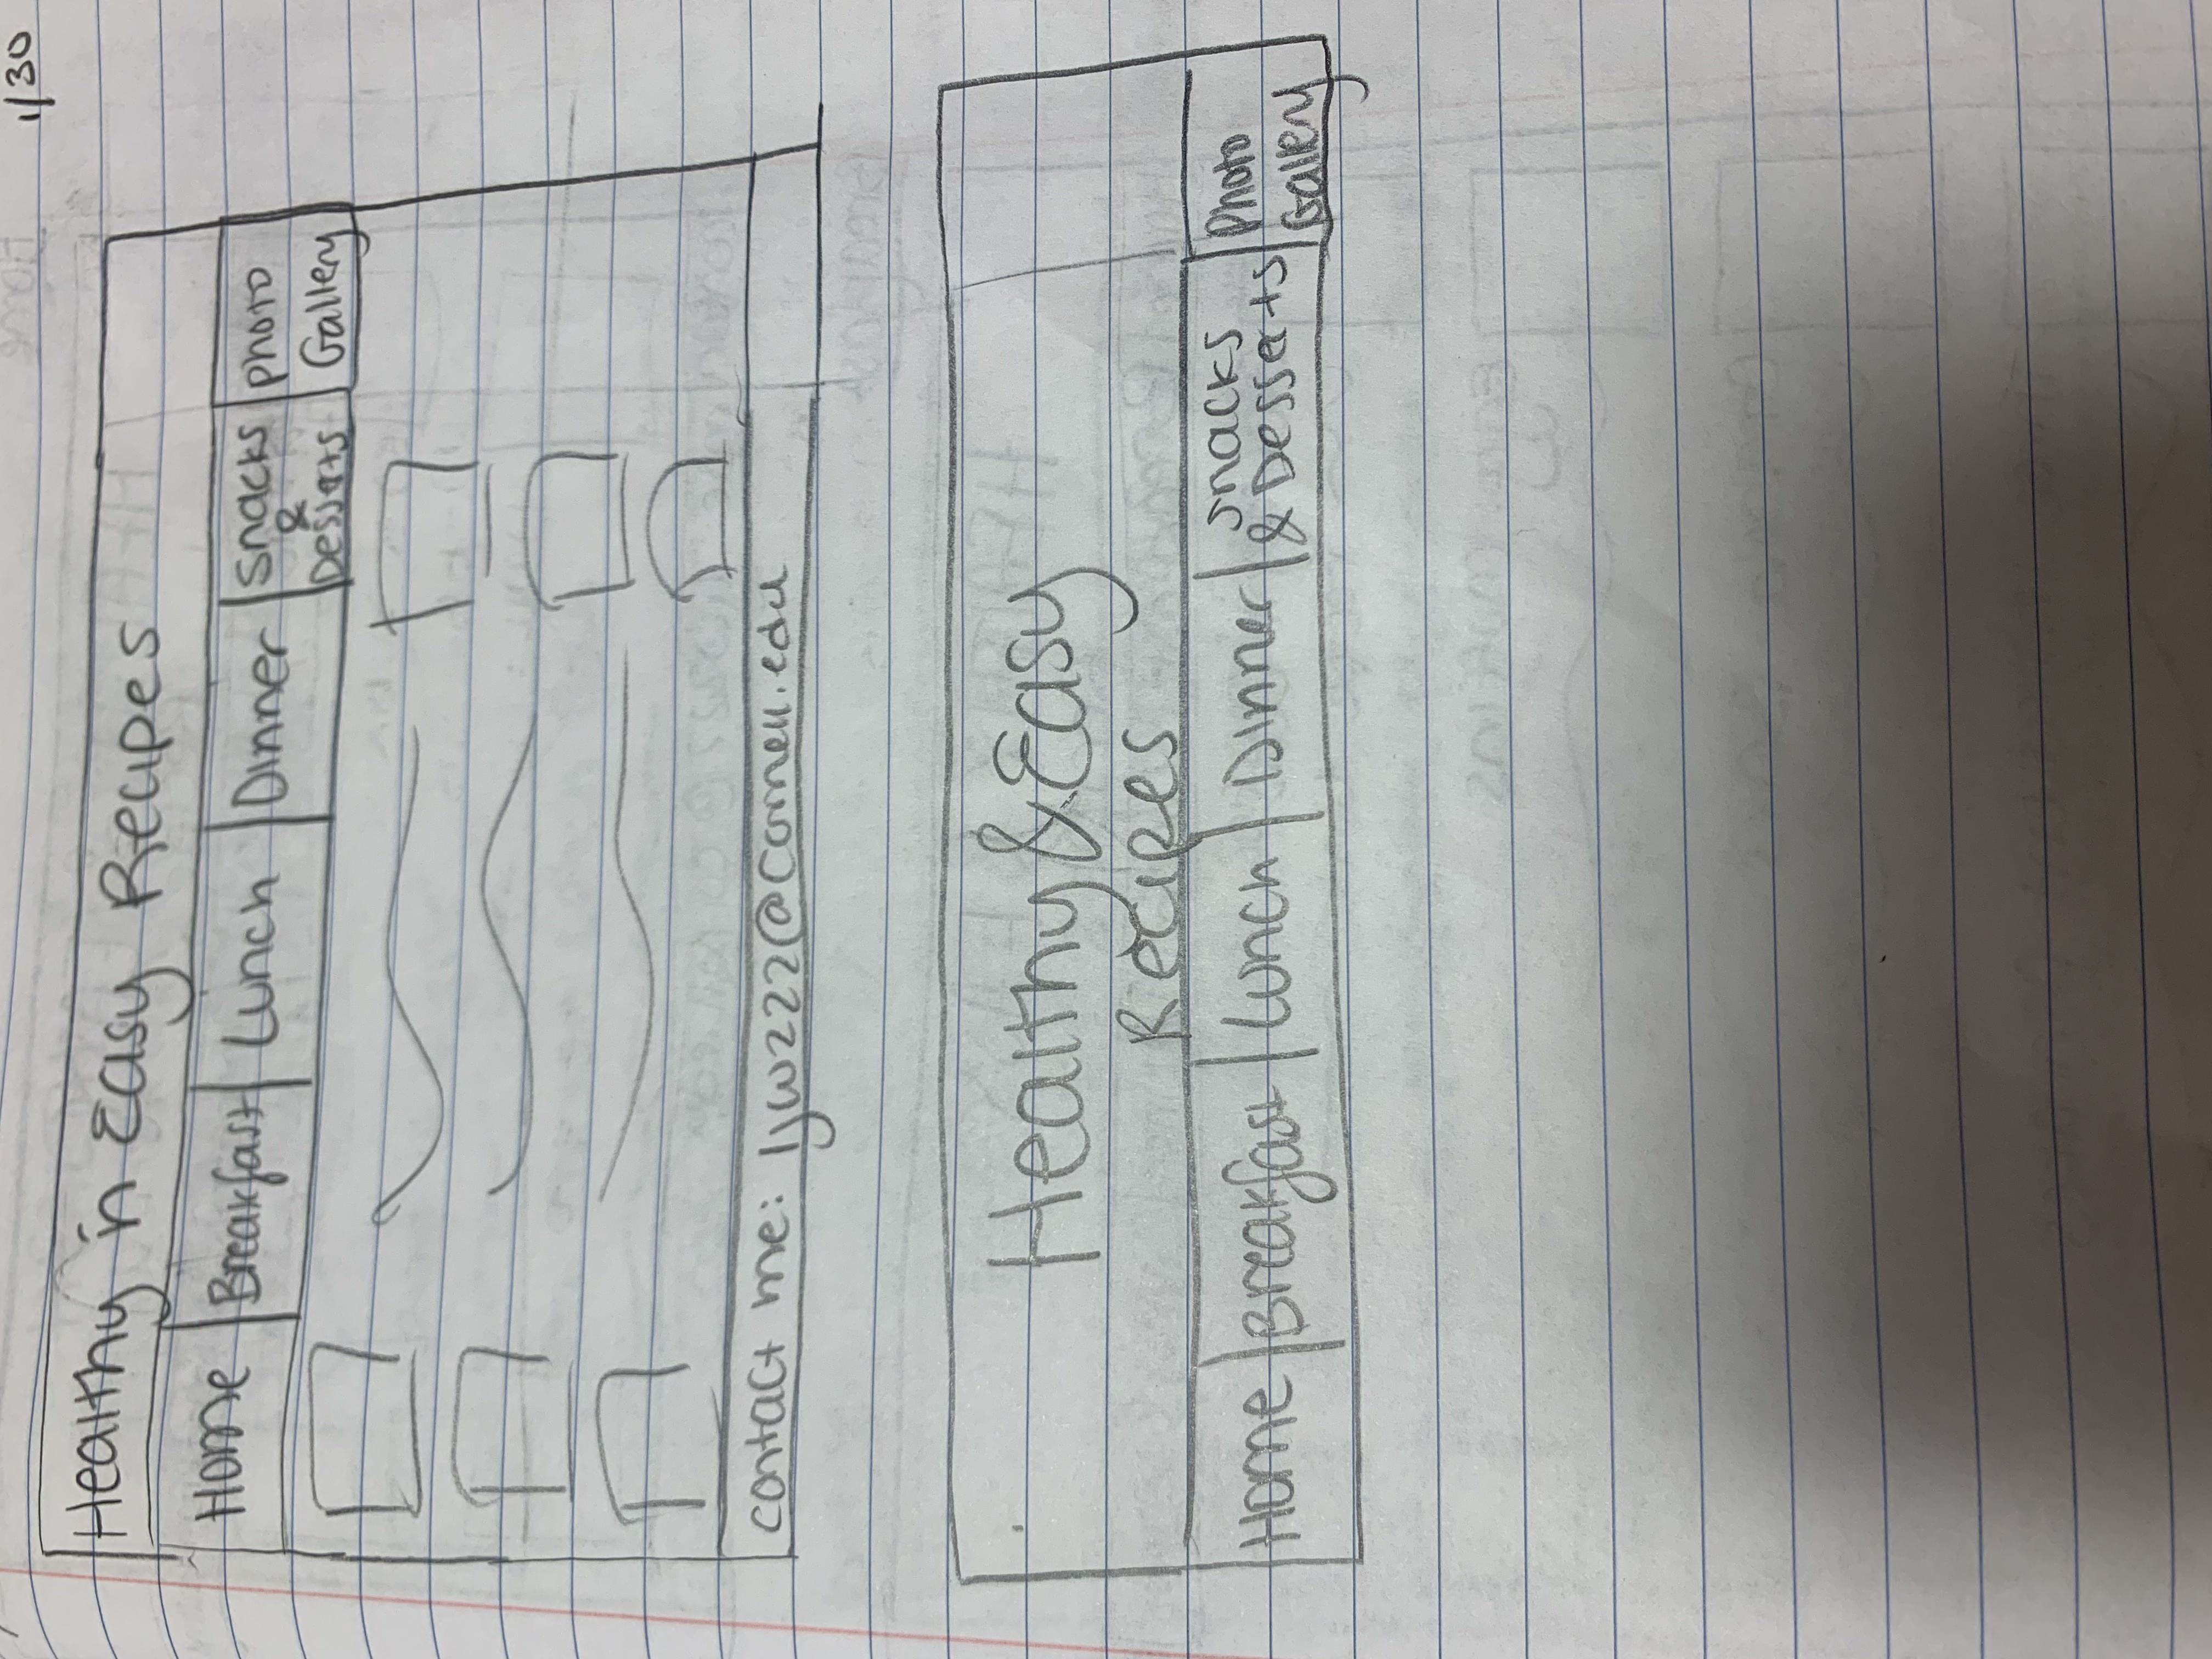 1/30
Healthy n Easy Recipes
Home Breakfast Lunch Dinner Snacks & Desserts Photo Gallery
contact me: ljw222@cornell.edu
Healthy & Easy
Recipes
Home Breakfast Lunch Dinner Snacks & Desserts Photo Gallery